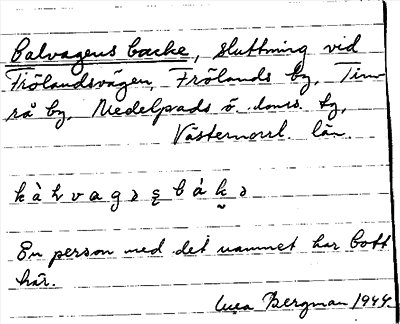 Calvagens backe, sluttning vid
Frölandsvägen, Frölands by, Tim-
rå by, Medelpads ö. doms. tg,
Västernorrl. län.
En person med det namnet har bott
här.
Bergman 1944.